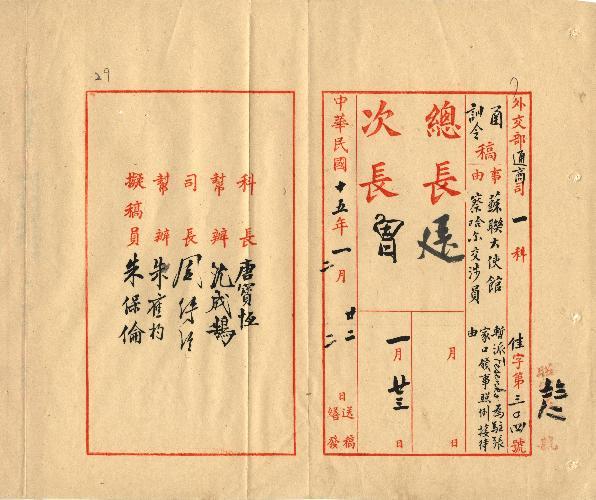 29
外交部通商司一科
佳字第三〇四號
函
訓令
稿
事由
蘇聯大使館
察哈尔交涉員
暫派
為駐張
家口領事照例接待
由
總長
次長
曾
月
日
一月廿三日
中華民國十五年一月廿二日送稿
二 二 繕發
科長 唐寶恆
幫辦 沈成鵠
司長
幫辦 朱
擬稿員 朱保倫